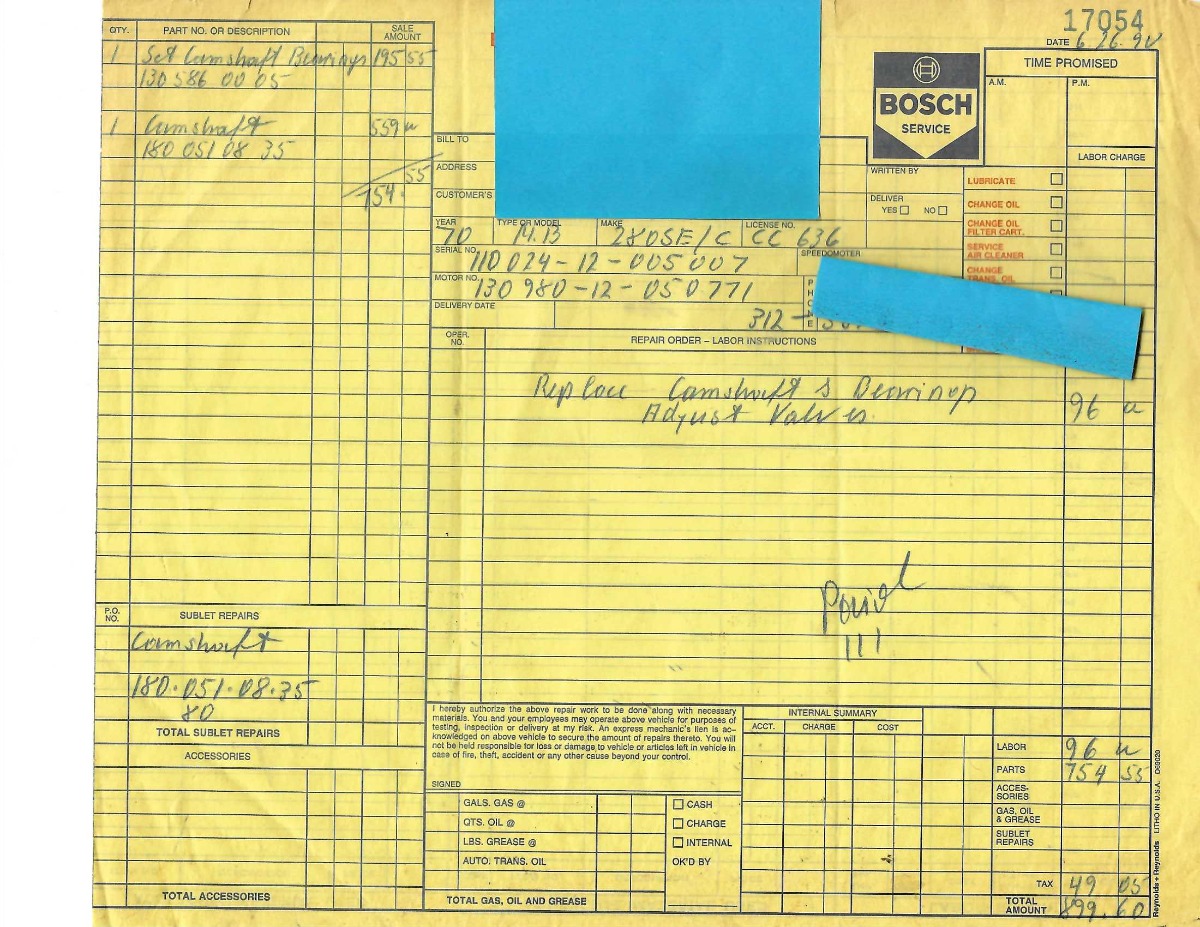 17054
DATE 6.26.90
QTY. PART NO. OR DESCRIPTION SALE AMOUNT
1 Set Camshaft Bearings 195 55
130 586 00 05
1 Camshaft 559 00
180 051 08 35
754. 55
BOSCH
SERVICE
TIME PROMISED
A.M. P.M.
LABOR CHARGE
BILL TO
ADDRESS
CUSTOMER'S
WRITTEN BY
DELIVER
YES NO
LUBRICATE
CHANGE OIL
CHANGE OIL
FILTER CART.
SERVICE
AIR CLEANER
CHANGE
TRANS. OIL
YEAR TYPE OR MODEL MAKE LICENSE NO.
70 M.13 280SE/C CC 636
SERIAL NO. SPEEDOMOTER
110 024-12-005007
MOTOR NO.
130 980-12-050771
PHONE
DELIVERY DATE
312 -
OPER. NO. REPAIR ORDER – LABOR INSTRUCTIONS
Replace Camshaft & Bearings
Adjust Valves. 96 00
Paid
111
P.O. NO. SUBLET REPAIRS
Camshaft
180.051.08.35
80
TOTAL SUBLET REPAIRS
ACCESSORIES
TOTAL ACCESSORIES
I hereby authorize the above repair work to be done along with necessary
materials. You and your employees may operate above vehicle for purposes of
testing, inspection or delivery at my risk. An express mechanic's lien is ac-
knowledged on above vehicle to secure the amount of repairs thereto. You will
not be held responsible for loss or damage to vehicle or articles left in vehicle in
case of fire, theft, accident or any other cause beyond your control.
SIGNED
GALS. GAS @
QTS. OIL @
LBS. GREASE @
AUTO. TRANS. OIL
TOTAL GAS, OIL AND GREASE
CASH
CHARGE
INTERNAL
OK'D BY
INTERNAL SUMMARY
ACCT. CHARGE COST
LABOR 96 00
PARTS 754 55
ACCES-
SORIES
GAS, OIL
& GREASE
SUBLET
REPAIRS
TAX 49 05
TOTAL
AMOUNT 899.60
Reynolds + Reynolds LITHO IN U.S.A. D09020